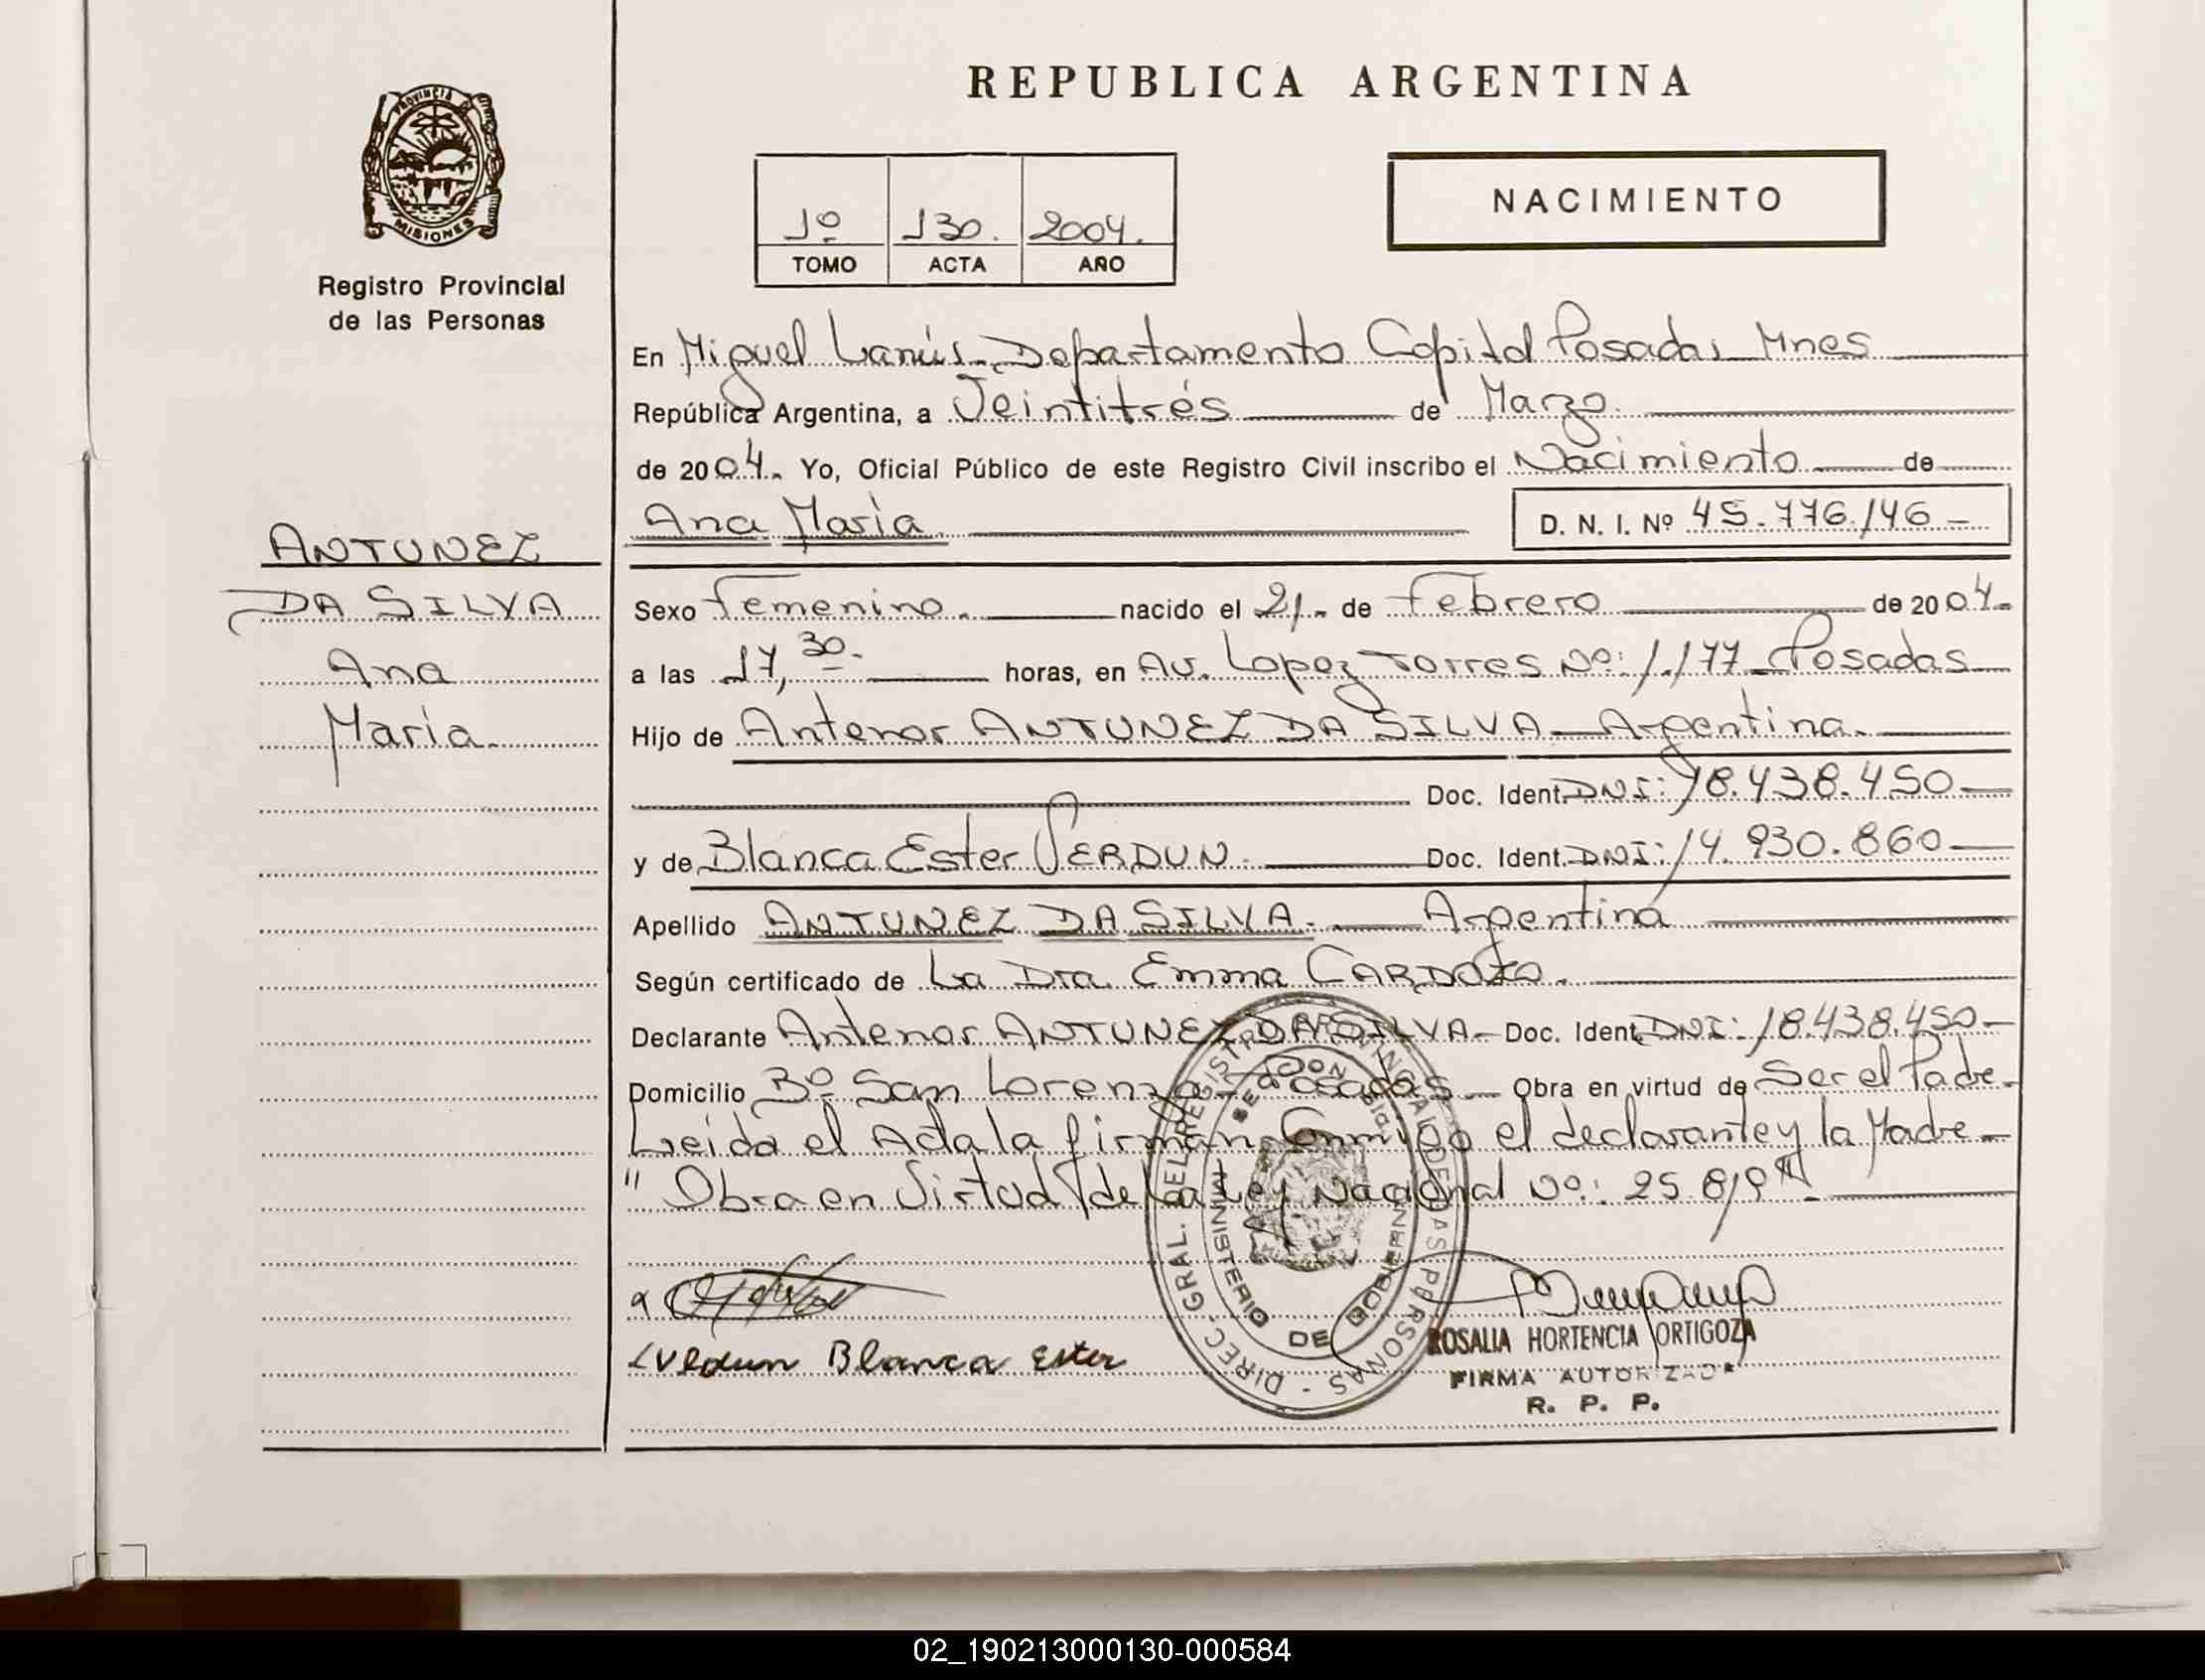 REPUBLICA ARGENTINA
PROVINCIA DE
MISIONES
Registro Provincial
de las Personas
1º 130. 2004.
TOMO ACTA AÑO
NACIMIENTO
En Miguel Lanús Departamento Capital Posadas Mnes
República Argentina, a Veintitrés de Marzo.
de 2004. Yo, Oficial Público de este Registro Civil inscribo el Nacimiento de
Ana María. D. N. I. Nº 45.776.146
ANTUNEZ
DA SILVA
Ana
María.
Sexo Femenino. nacido el 21 de Febrero de 2004.
a las 17,30. horas, en Av. Lopez Torres Nº: 1.177 Posadas
Hijo de Antenor ANTUNEZ DA SILVA - Argentina.
Doc. Ident. DNI: 18.438.450
y de Blanca Ester VERDUN. Doc. Ident. DNI: 14.930.860
Apellido ANTUNEZ DA SILVA. Argentina
Según certificado de La Dra. Emma CARDOZO.
Declarante Antenor ANTUNEZ DA SILVA - Doc. Ident. DNI: 18.438.450
Domicilio Bº San Lorenzo - Posadas - Obra en virtud de Ser el Padre.
Leída el Acta la firman Conmigo el declarante y la Madre -
" Obra en Virtud de la Ley Nacional Nº: 25.819"
Verdun Blanca Ester
DIREC. GRAL. DEL REGISTRO PROVINCIAL DE LAS PERSONAS
MINISTERIO DE GOBIERNO
ROSALIA HORTENCIA ORTIGOZA
FIRMA AUTORIZADA
R. P. P.
02_190213000130-000584